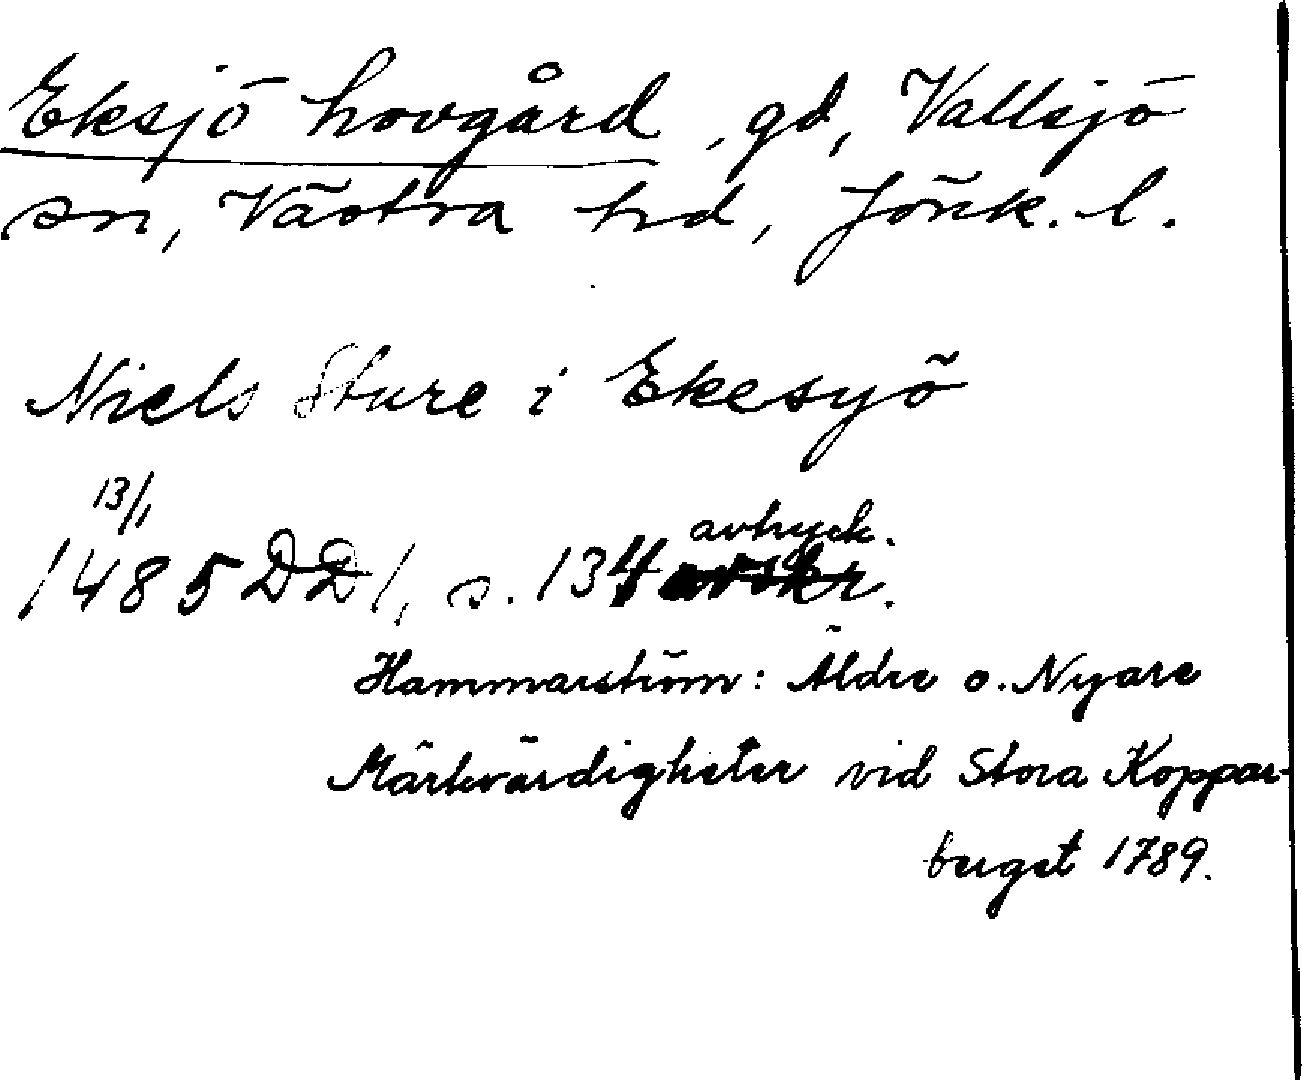 Eksjö hovgård, gd, Vallsjö
sn, Västra hd, Jönk. l.
Niels Sture i Ekesyö
13/1
avtryck.
1485 DD 1, s. 134 avskr.
Hammarström: Äldre o. Nyare
Märkvärdigheter vid Stora Koppar-
berget 1789.